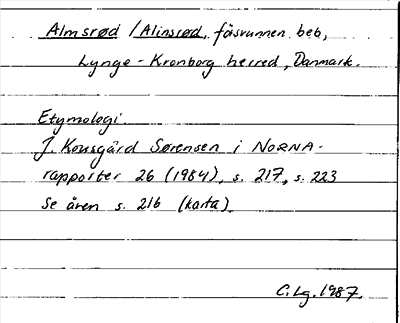 Almsrød / Alinsrød, försvunnen beb,
Lynge-Kronborg herred, Danmark.
Etymologi:
J. Kousgård Sørensen i NORNA-
rapporter 26 (1984), s. 217, s. 223
Se även s. 216 (karta).
C.Lg. 1987.